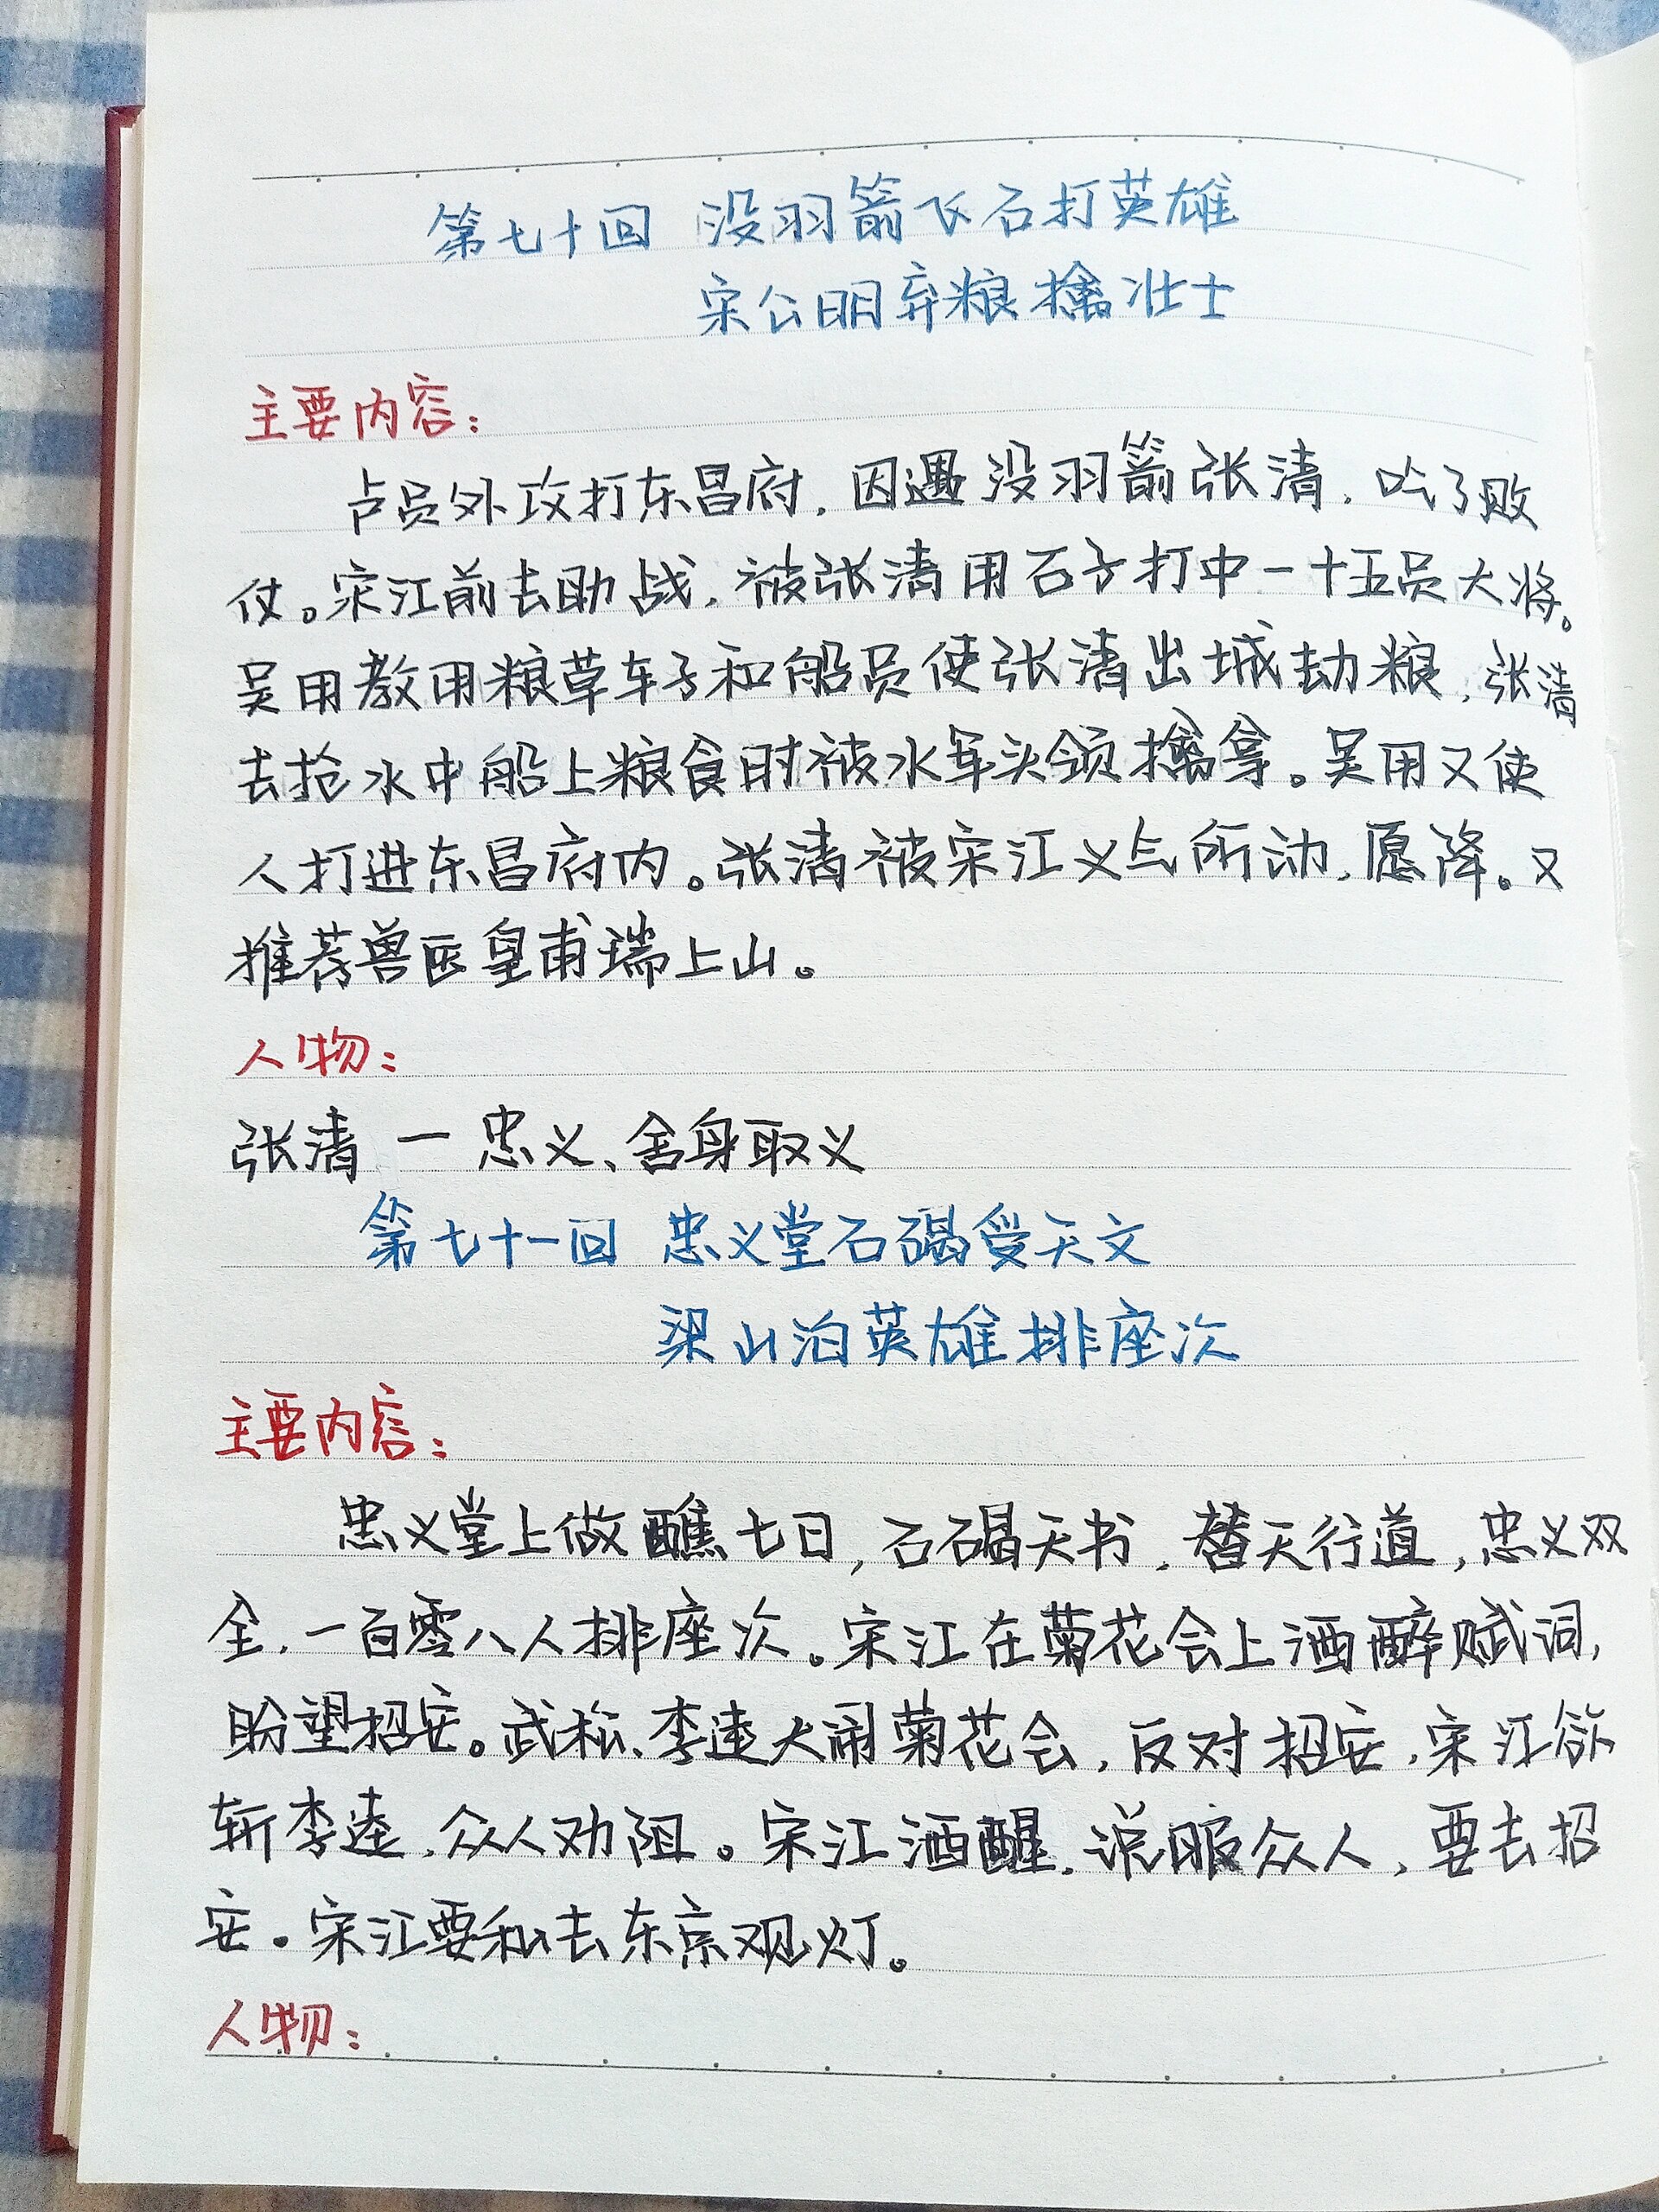 第七十回 没羽箭飞石打英雄
宋公明弃粮擒壮士
主要内容：
卢员外攻打东昌府，因遇没羽箭张清，吃了败
仗。宋江前去助战，被张清用石子打中一十五员大将。
吴用教用粮草车子和船员使张清出城劫粮，张清
去抢水中船上粮食时被水军头领擒拿。吴用又使
人打进东昌府内。张清被宋江义气所动，愿降。又
推荐兽医皇甫瑞上山。
人物：
张清 — 忠义、舍身取义
第七十一回 忠义堂石碣受天文
梁山泊英雄排座次
主要内容：
忠义堂上做醮七日，石碣天书，替天行道，忠义双
全，一百零八人排座次。宋江在菊花会上酒醉赋词，
盼望招安。武松、李逵大闹菊花会，反对招安，宋江欲
斩李逵，众人劝阻。宋江酒醒，说服众人，要去招
安。宋江要私去东京观灯。
人物：